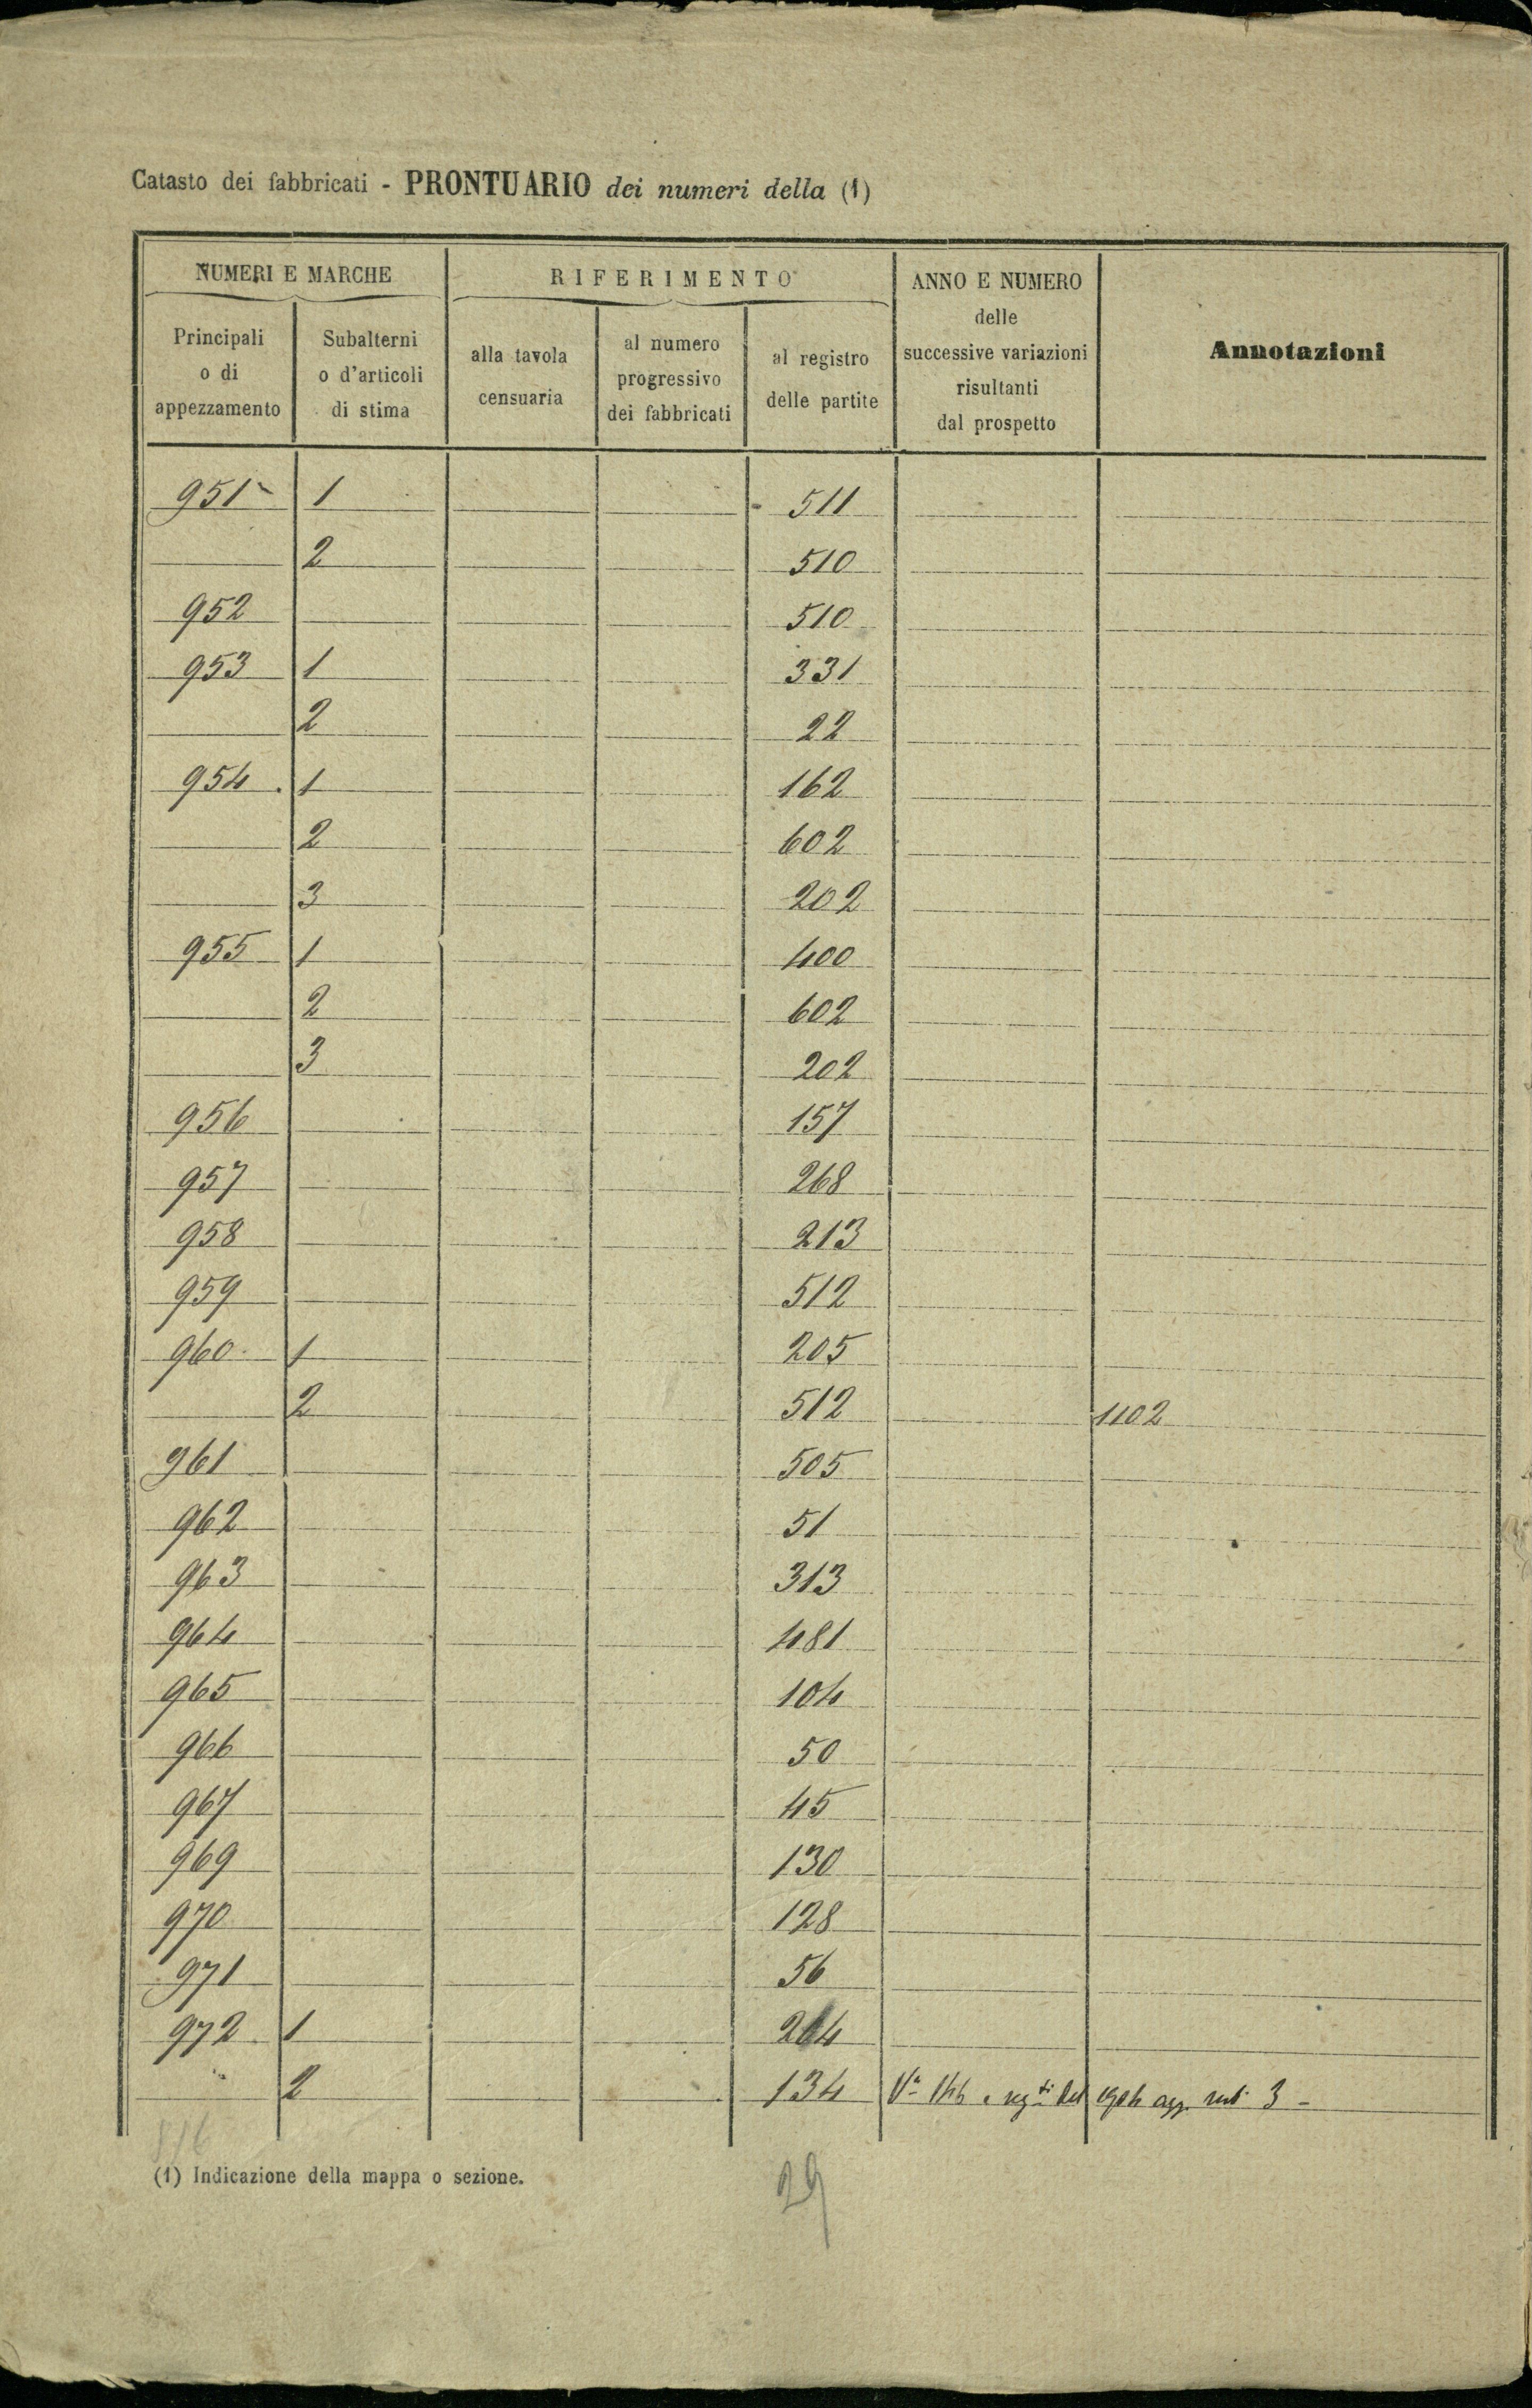 Catasto dei fabbricati - PRONTUARIO dei numeri della (1)
NUMERI E MARCHE
RIFERIMENTO
ANNO E NUMERO
delle
successive variazioni
risultanti
dal prospetto
Annotazioni
Principali
o di
appezzamento
Subalterni
o d'articoli
di stima
alla tavola
censuaria
al numero
progressivo
dei fabbricati
al registro
delle partite
951 1 511
2 510
952 510
953 1 331
2 22
954 1 162
2 602
3 202
955 1 400
2 602
3 202
956 157
957 268
958 213
959 512
960 1 205
2 512 1102
961 505
962 51
963 313
964 481
965 104
966 50
967 45
969 130
970 128
971 56
972 1 264
2 134 3 -
(1) Indicazione della mappa o sezione.
29